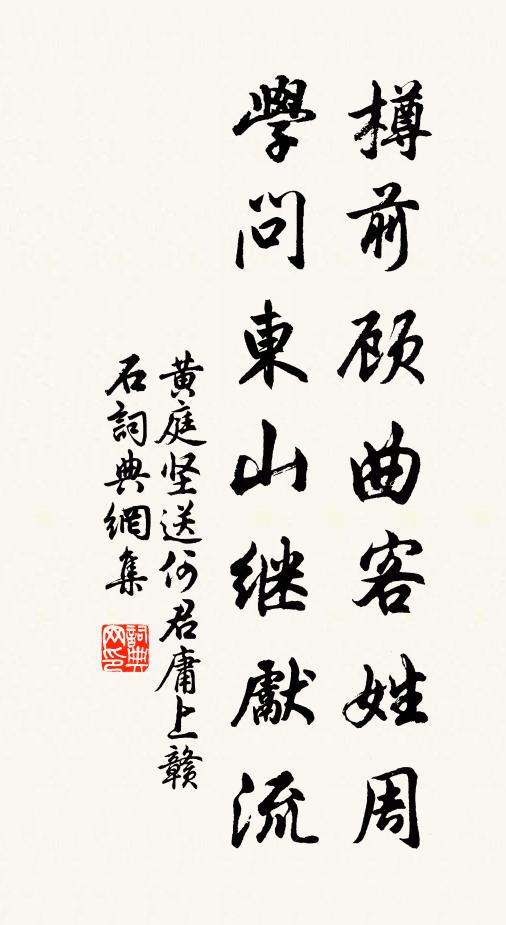 樽前顾曲客姓周
學問東山继獻流
黄庭坚送何君庸上赣
石詞典網集
詞典網印